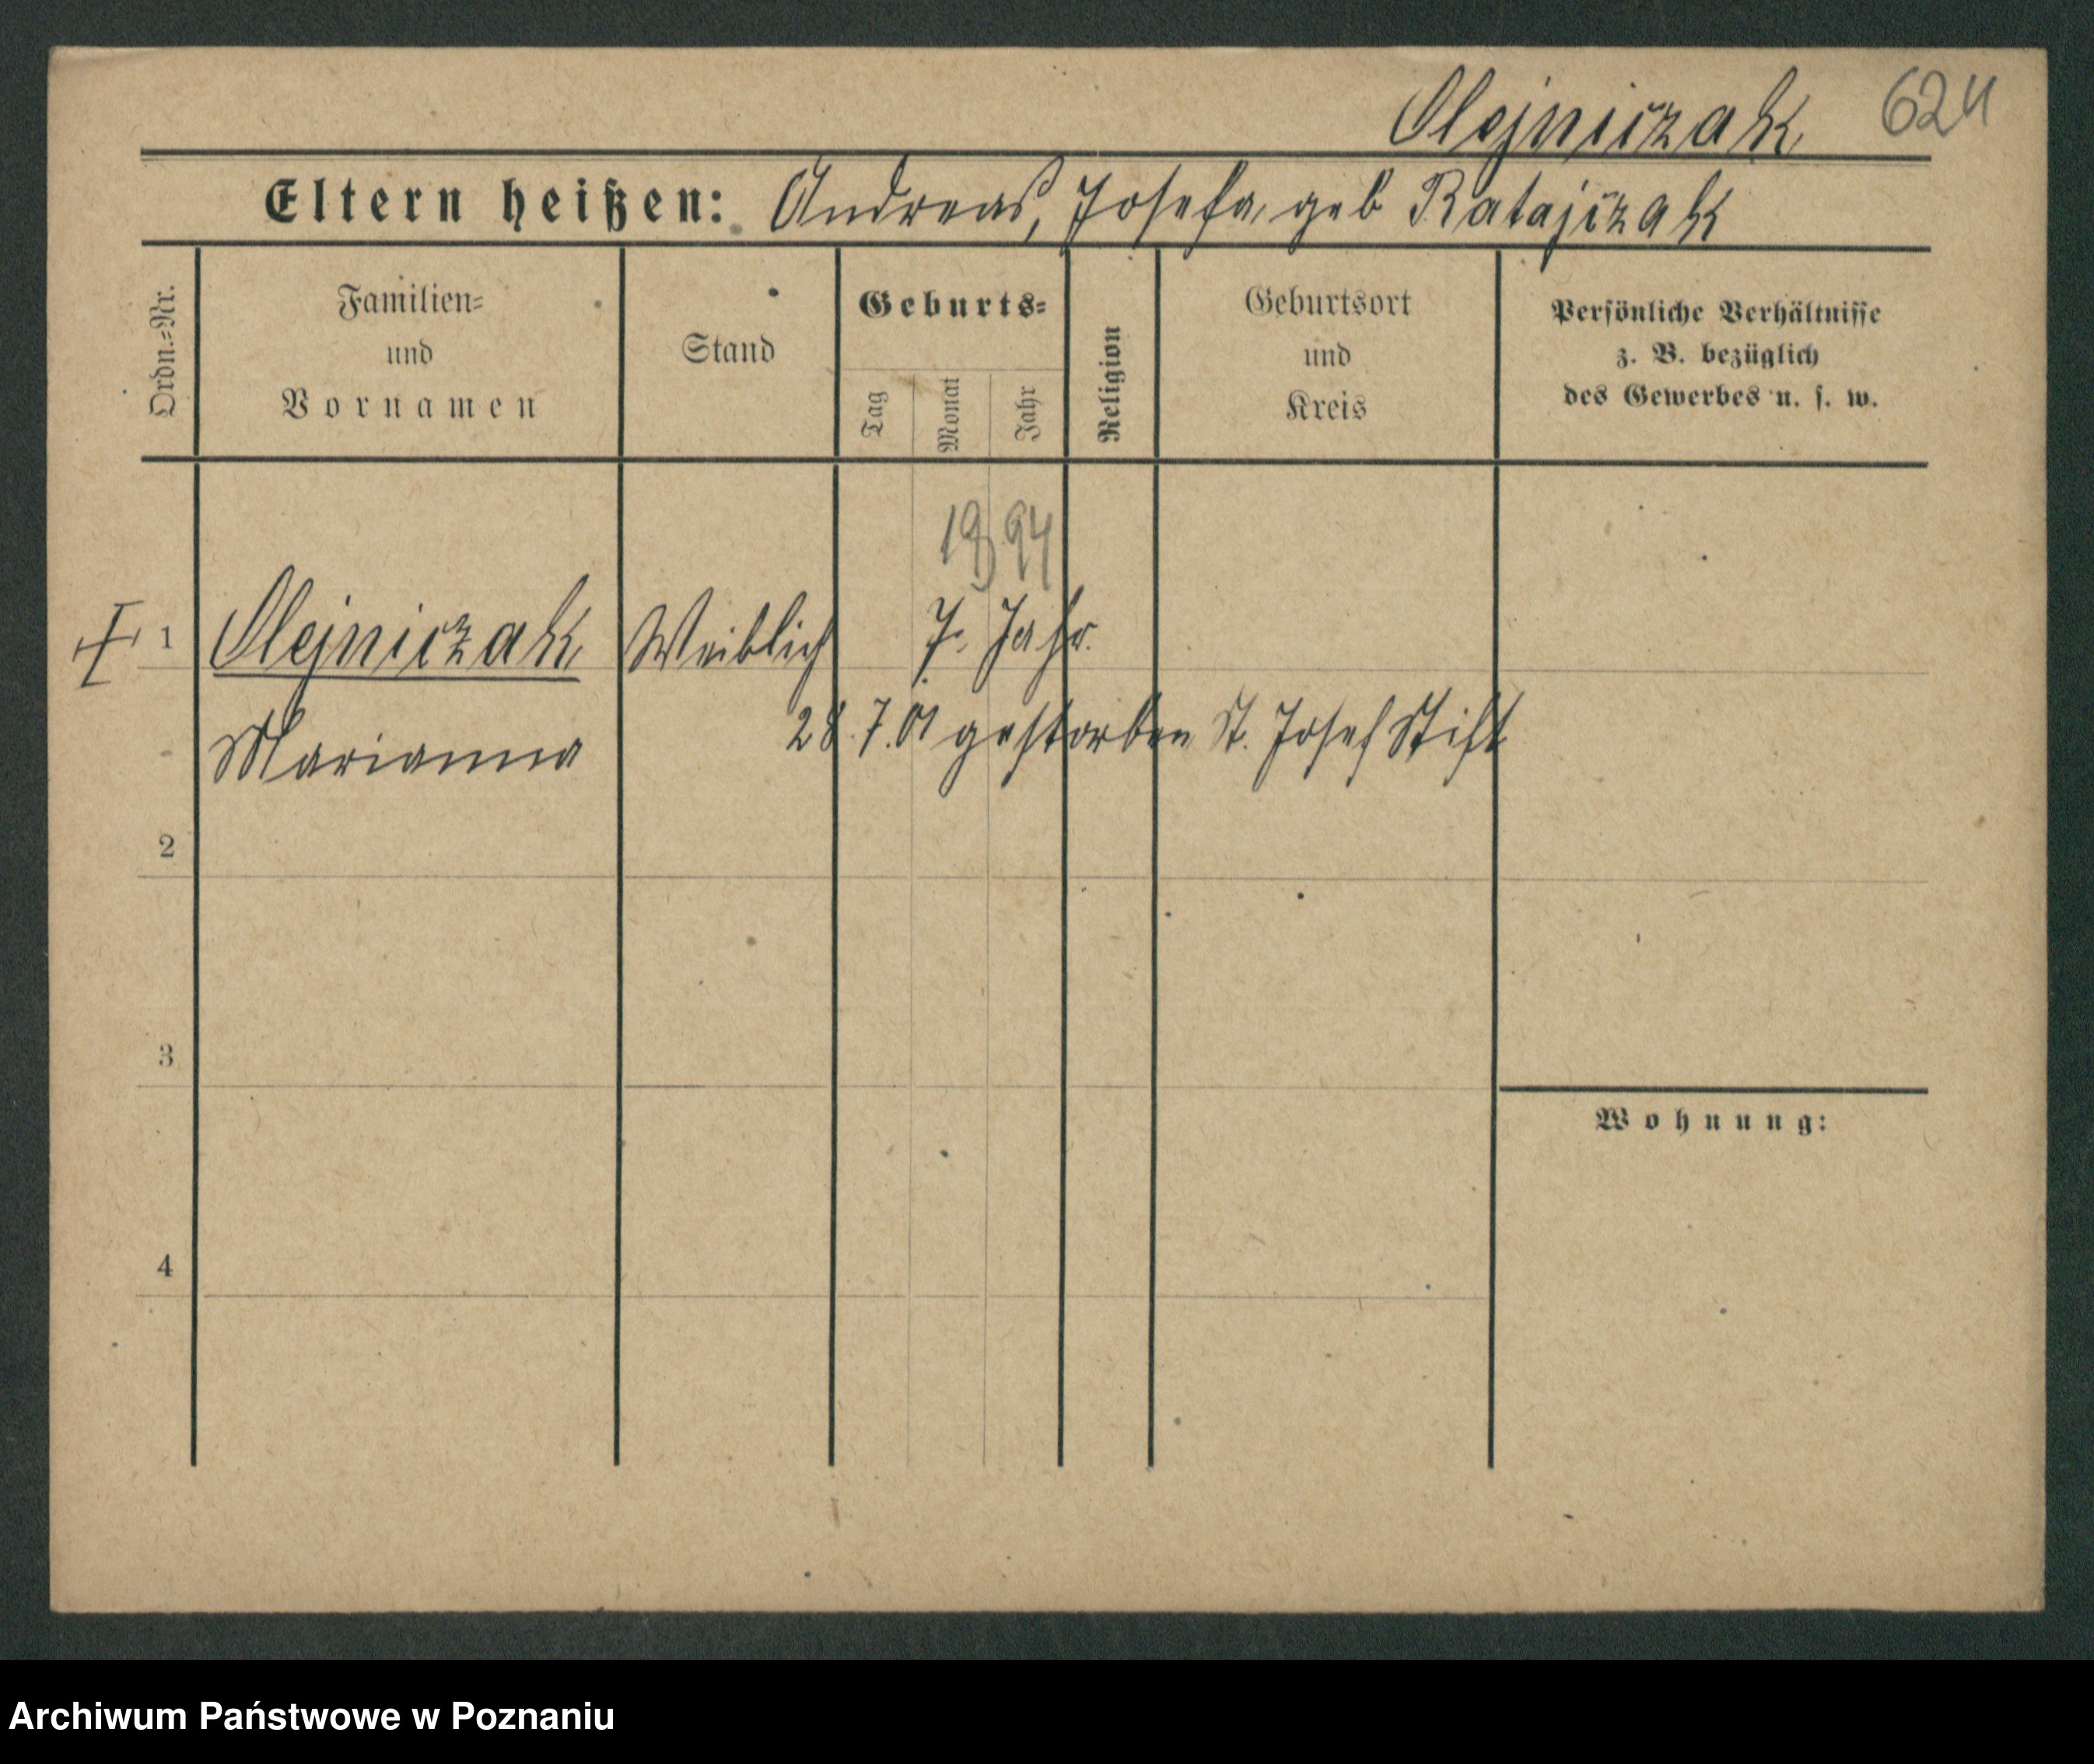 Olejniczak 624
Eltern heißen: Andreas, Josefa, geb Ratajczak
Ordn.=Nr.
Familien=
und
Vornamen
Stand
Geburts=
Tag
Monat
Jahr
Religion
Geburtsort
und
Kreis
Persönliche Verhältnisse
z. B. bezüglich
des Gewerbes u. s. w.
1894
1 Olejniczak Weiblich 7. Jahr.
Marianna 28.7.01 gestorben St. Josef Stift
2
3
Wohnung:
4
Archiwum Państwowe w Poznaniu